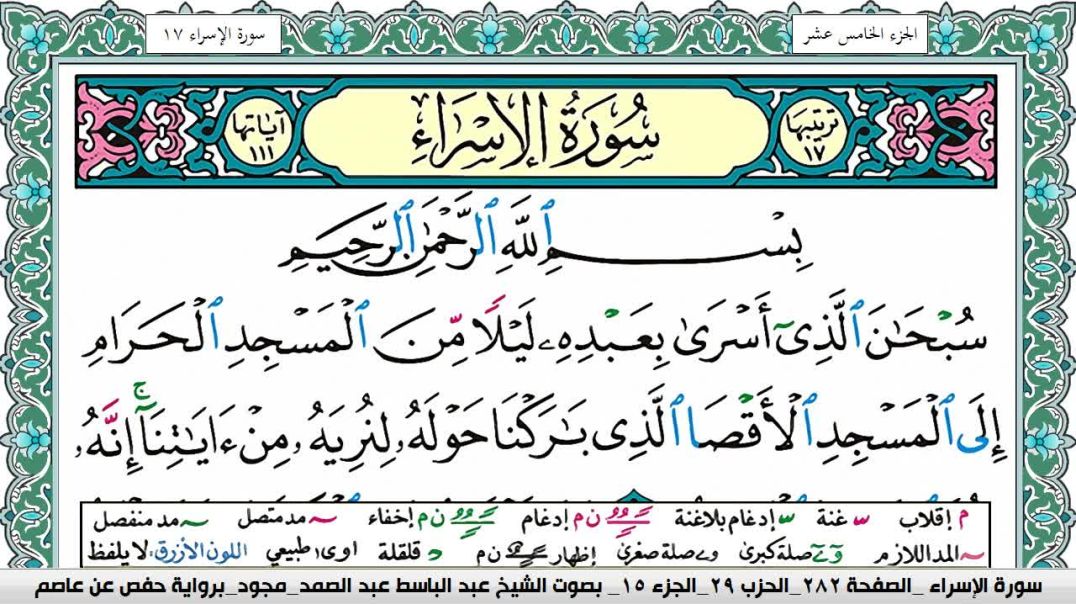 الجزء الخامس عشر
سورة الإسراء ١٧
ترتيبها ١٧
سُورَةُ الإِسْرَاءِ
آياتها ١١١
بِسْمِ ٱللَّهِ ٱلرَّحْمَٰنِ ٱلرَّحِيمِ
سُبْحَٰنَ ٱلَّذِىٓ أَسْرَىٰ بِعَبْدِهِۦ لَيْلًا مِّنَ ٱلْمَسْجِدِ ٱلْحَرَامِ
إِلَى ٱلْمَسْجِدِ ٱلْأَقْصَا ٱلَّذِى بَٰرَكْنَا حَوْلَهُۥ لِنُرِيَهُۥ مِنْ ءَايَٰتِنَآ ۚ إِنَّهُۥ
م إقلاب غنة إدغام بلاغنة ن م إدغام ن م إخفاء مد متصل مد منفصل
المد اللازم صلة كبرى صلة صغرى إظهار ن م قلقلة د اوى طبيعي اللون الأزرق: لا يلفظ
سورة الإسراء _الصفحة ٢٨٢_الحزب ٢٩_الجزء ١٥_ بصوت الشيخ عبد الباسط عبد الصمد_مجود_برواية حفص عن عاصم